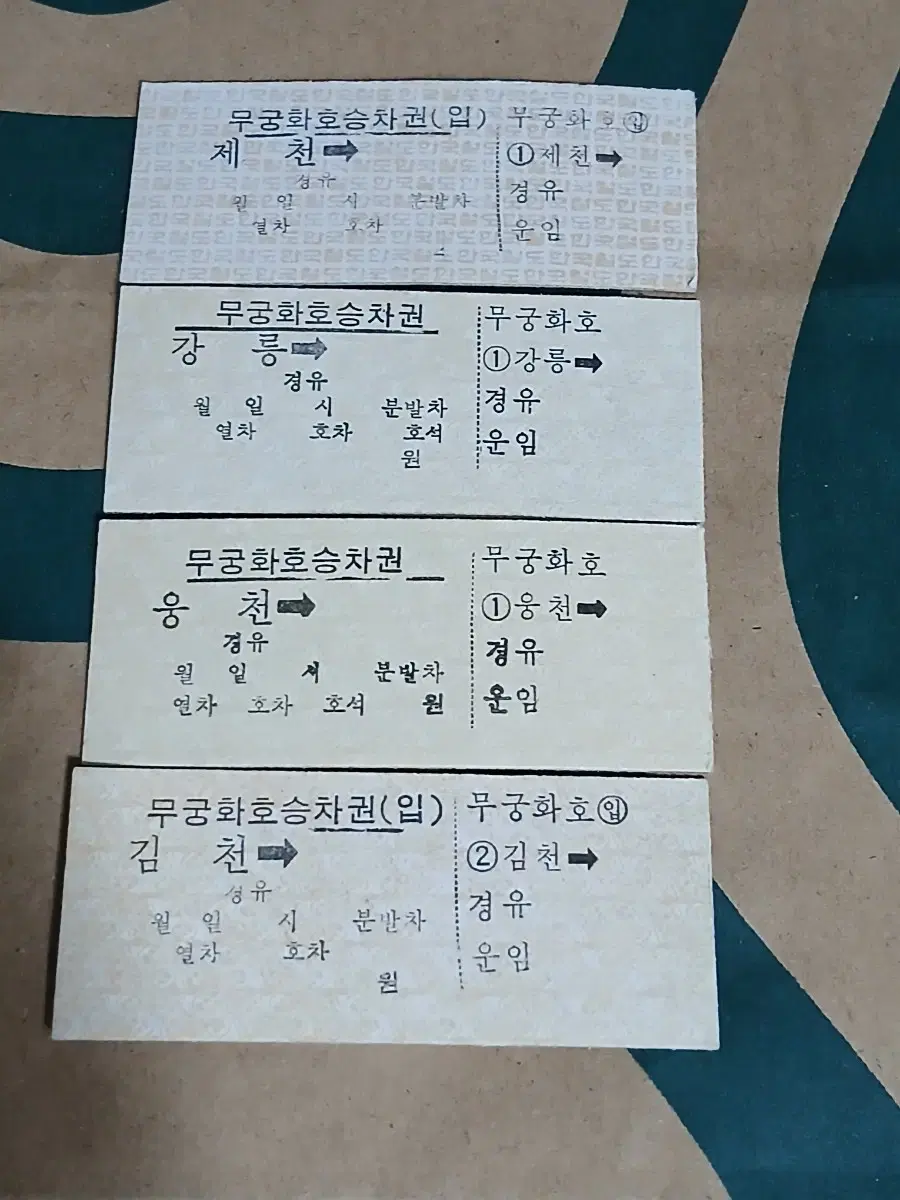 무궁화호승차권(입)
제 천➡
경유
월 일 시 분발차
열차 호차
무궁화호㊞
①제천➡
경유
운임
무궁화호승차권
강 릉➡
경유
월 일 시 분발차
열차 호차 호석
원
무궁화호
①강릉➡
경유
운임
무궁화호승차권
웅 천➡
경유
월 일 시 분발차
열차 호차 호석 원
무궁화호
①웅천➡
경유
운임
무궁화호승차권(입)
김 천➡
경유
월 일 시 분발차
열차 호차
원
무궁화호(입)
②김천➡
경유
운임